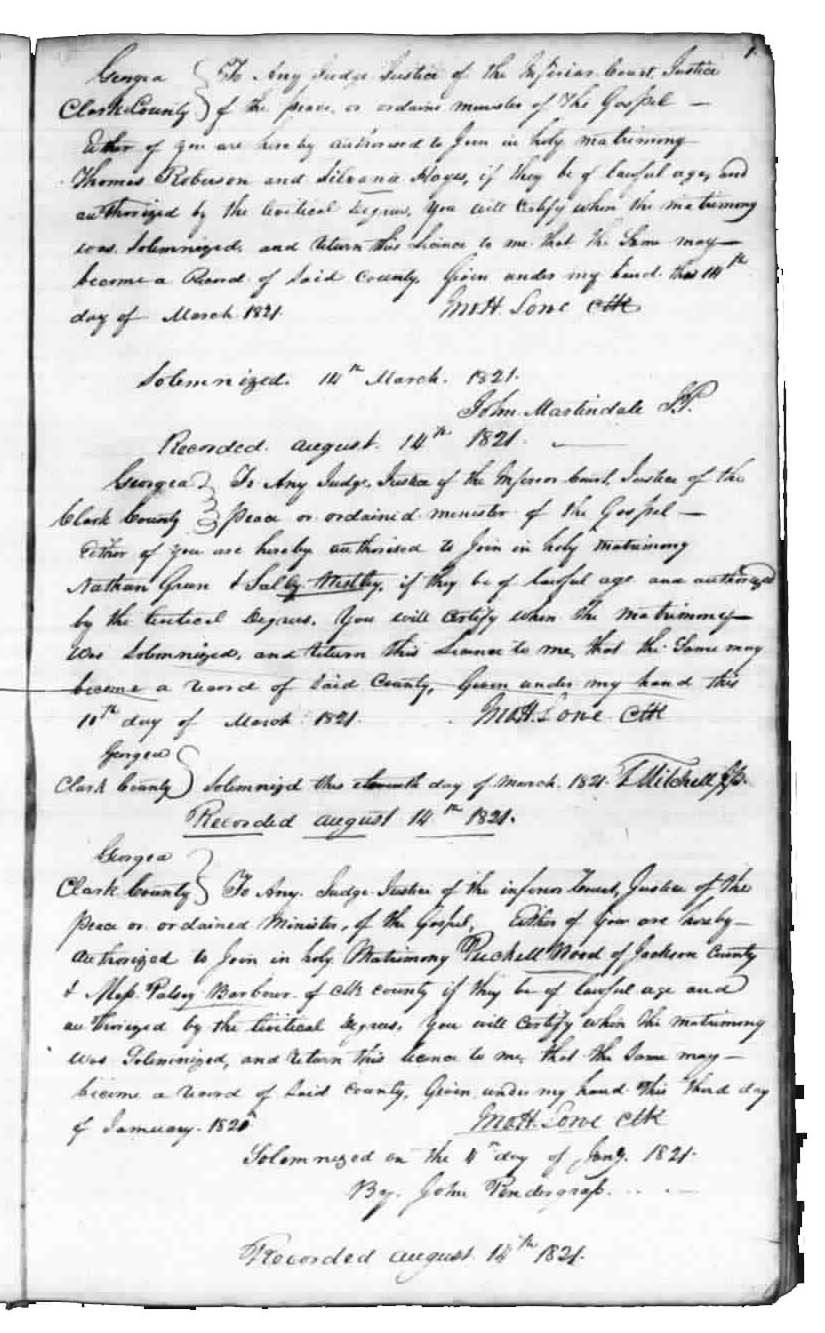 1.
Georgia } To Any Judge Justice of the Inferior Court, Justice
Clark County } of the peace, or ordaine minister of The Gospel —
Either of you are hereby authorised to Join in holy matrimony
Thomas Roberson and Silvana Hayes, if they be of lawful age, and
authorized by the Levitical Degrees, You will Certify when the matrimony
was Solemnized, and return this Licence to me that the Same may
become a Record of Said County, Given under my hand this 14th
day of March 1821. Jno H. Lowe Clk
Solemnized. 14th March. 1821.
John Martindale J.P.
Recorded. august. 14th 1821. —
Georgea } To Any Judge, Justice of the Inferior Court, Justice of the
Clark County } peace or ordained minister of the Gospel —
Either of you are hereby authorised to Join in holy matrimony
Nathan Green & Sally, if they be of lawful age and authorized
by the Levitical Degrees. You will Certify when the matrimony
Was Solemnized, and return this Licence to me, that the Same may
become a record of Said County, Given under my hand this
10th day of March 1821. Jno H. Lowe Clk
Georgea
Clark County } Solemnizd this eleventh day of March 1821. Mitchell
Recorded august 14th 1821.
Georgea
Clark County } To Any Judge Justice of the inferior Court, Justice of the
peace or ordained Minister, of the Gospel, Either of you are hereby
authorized to Join in holy Matrimony Wood of Jackson County
& Miss Patsey Barbour of Clk County if they be of lawful age and
authorized by the Levitical Degrees, You will Certify when the matrimony
was Solemnized, and return this licence to me, that the Same may —
become a record of Said County, Given under my hand This Third day
of January. 1821 Jno H. Lowe Clk
Solemnized on the 4th day of Jany. 1821.
By John Pendergrass
Recorded august 14th 1821.